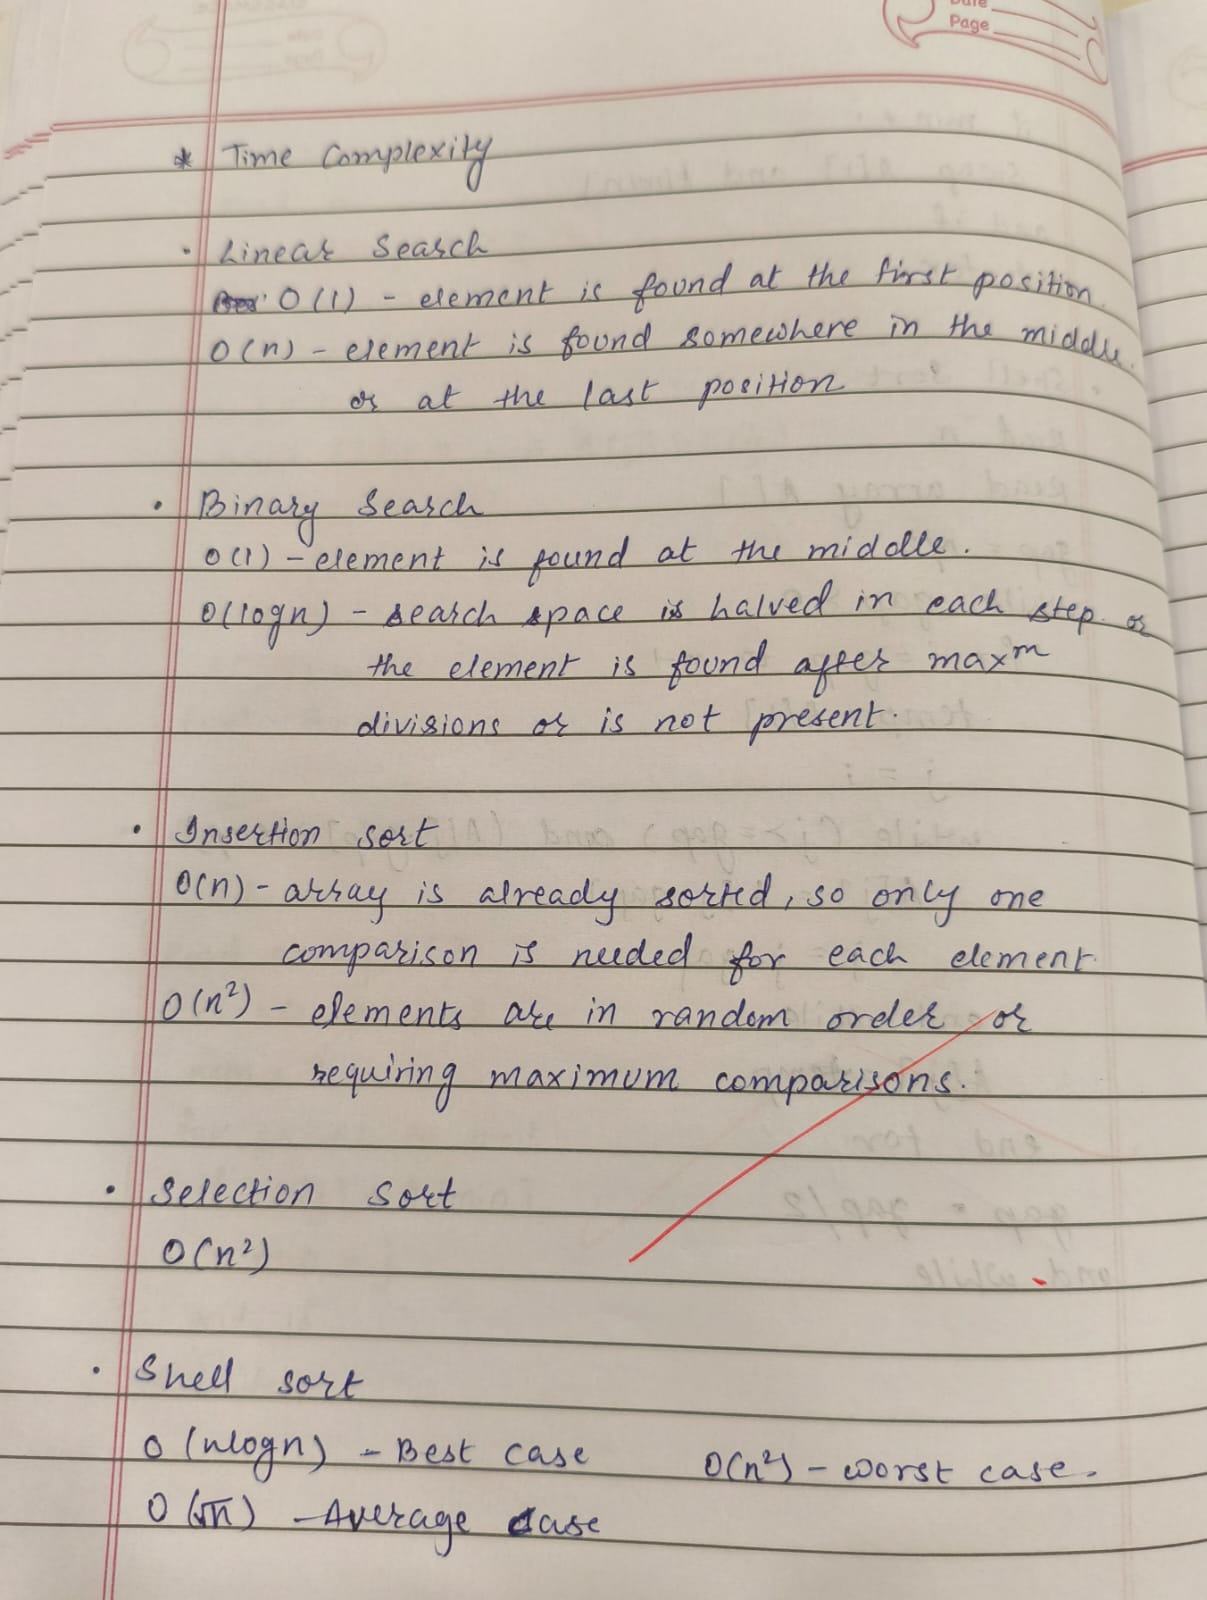 Date
Page
* Time Complexity
• Linear Search
O(1) - element is found at the first position.
O(n) - element is found somewhere in the middle.
or at the last position
• Binary Search
O(1) - element is found at the middle.
O(logn) - search space is halved in each step. or
the element is found after maxᵐ
divisions or is not present.
• Insertion sort
O(n) - array is already sorted, so only one
comparison is needed for each element.
O(n²) - elements are in random order or
requiring maximum comparisons.
• Selection Sort
O(n²)
• Shell sort
O(nlogn) - Best case O(n²) - worst case.
O(√n) - Average case